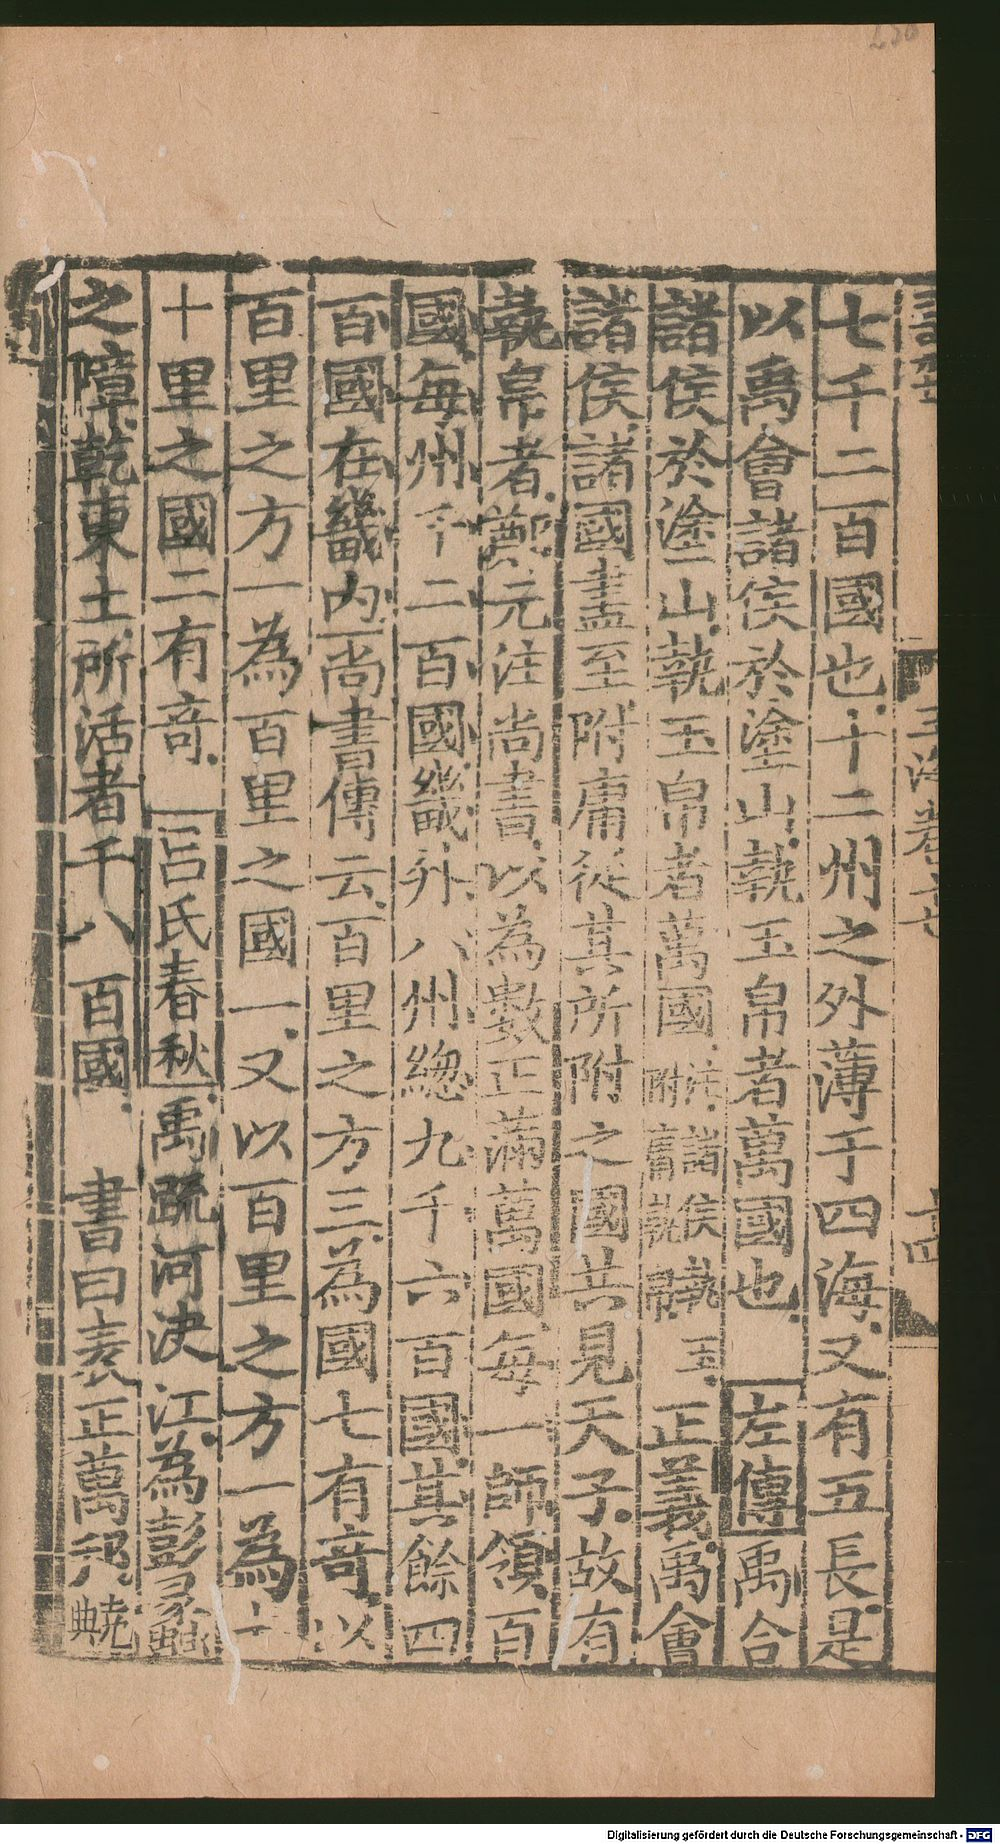 七千二百國也十二州之外薄于四海又有五長是
以禹會諸侯於塗山執玉帛者萬國也 左傳 禹合
諸侯於塗山執玉帛者萬國 註諸侯執玉附庸執帛 正義禹會
諸侯諸國盡至附庸從其所附之國共見天子故有
執帛者鄭元注尚書以為數正滿萬國每一師領百
國每州千二百國畿外八州總九千六百國其餘四
百國在畿内尚書傳云百里之方三為國七有奇以
百里之方一為百里之國一又以百里之方一為七
十里之國二有奇 呂氏春秋 禹疏河決江為彭蠡
之障乾東土所活者千八百國 書曰表正萬邦 堯典
玉海卷
Digitalisierung gefördert durch die Deutsche Forschungsgemeinschaft - DFG